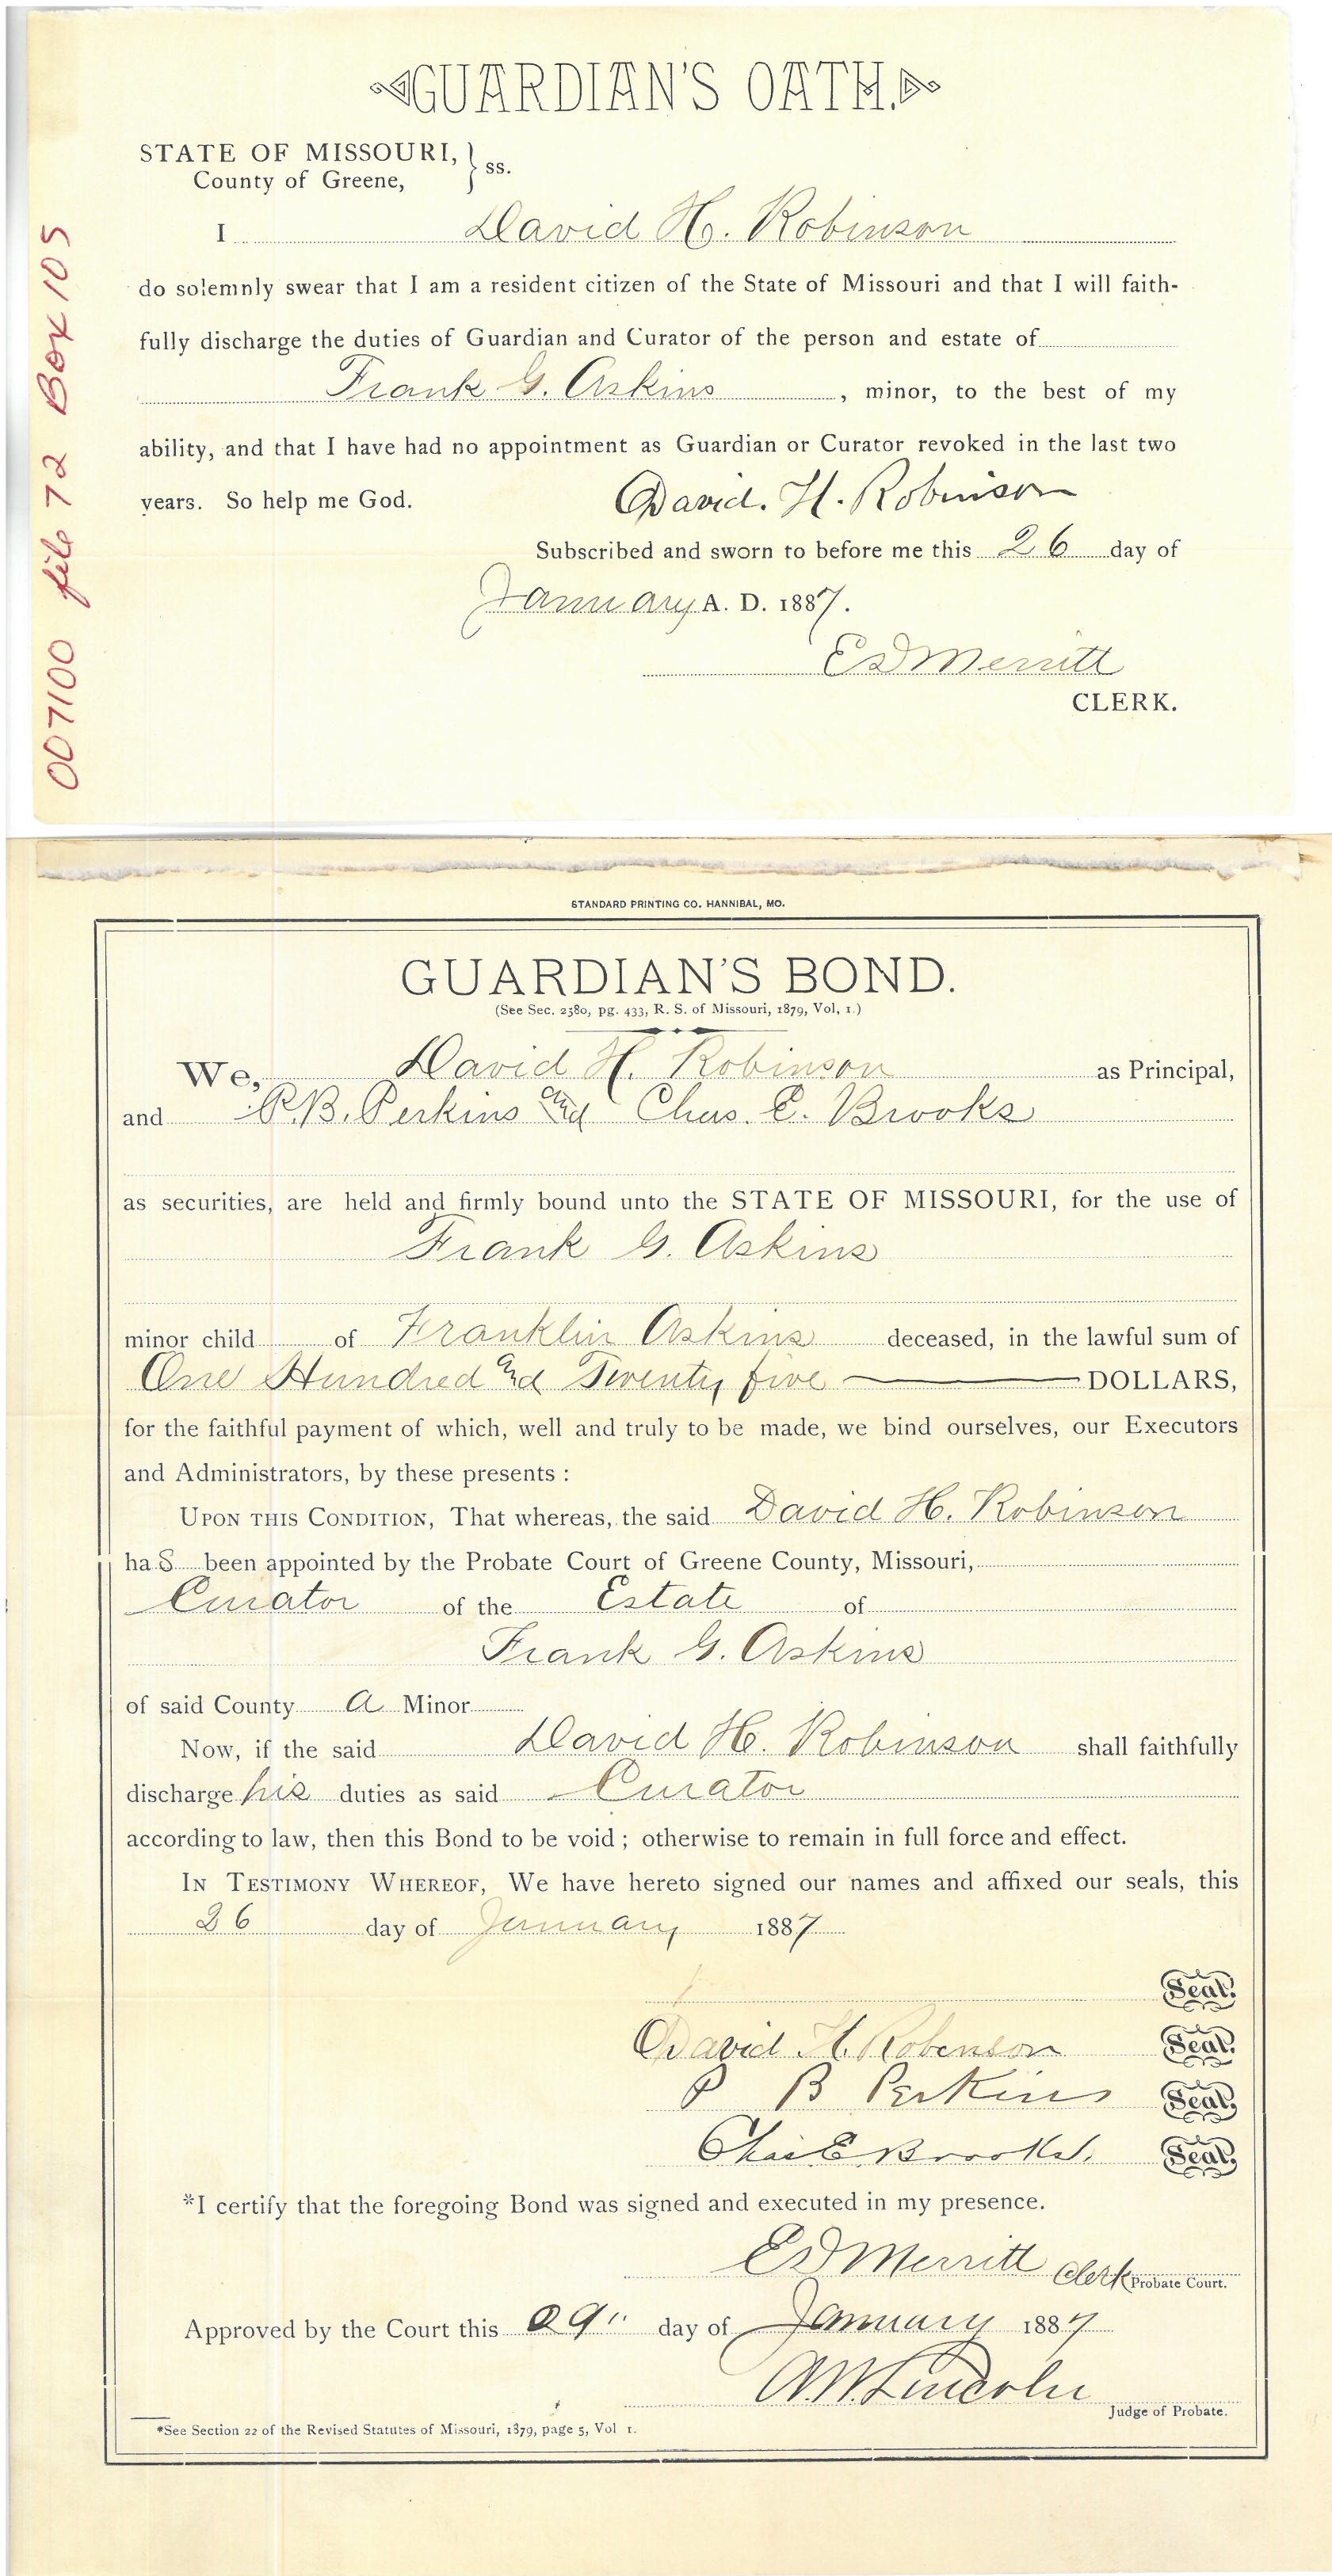 GUARDIAN'S OATH.
STATE OF MISSOURI,
County of Greene, } ss.
I David H. Robinson
do solemnly swear that I am a resident citizen of the State of Missouri and that I will faith-
fully discharge the duties of Guardian and Curator of the person and estate of
Frank G. Askins, minor, to the best of my
ability, and that I have had no appointment as Guardian or Curator revoked in the last two
years. So help me God. David. H. Robinson
Subscribed and sworn to before me this 26 day of
January A. D. 1887.
ED Merritt
CLERK.
007100 file 72 Box 105
STANDARD PRINTING CO. HANNIBAL, MO.
GUARDIAN'S BOND.
(See Sec. 2580, pg. 433, R. S. of Missouri, 1879, Vol, 1.)
We, David H. Robinson as Principal,
and P.B. Perkins and Chas. E. Brooks
as securities, are held and firmly bound unto the STATE OF MISSOURI, for the use of
Frank G. Askins
minor child of Franklin Askins deceased, in the lawful sum of
One Hundred and Twenty five DOLLARS,
for the faithful payment of which, well and truly to be made, we bind ourselves, our Executors
and Administrators, by these presents :
UPON THIS CONDITION, That whereas, the said David H. Robinson
has been appointed by the Probate Court of Greene County, Missouri,
Curator of the Estate of
Frank G. Askins
of said County a Minor
Now, if the said David H. Robinson shall faithfully
discharge his duties as said Curator
according to law, then this Bond to be void ; otherwise to remain in full force and effect.
IN TESTIMONY WHEREOF, We have hereto signed our names and affixed our seals, this
26 day of January 1887
Seal.
David H. Robinson Seal.
P B Perkins Seal.
Chas E Brooks. Seal.
*I certify that the foregoing Bond was signed and executed in my presence.
ED Merritt Clerk Probate Court.
Approved by the Court this 29" day of January 1887
A.W. Lincoln
Judge of Probate.
*See Section 22 of the Revised Statutes of Missouri, 1879, page 5, Vol 1.